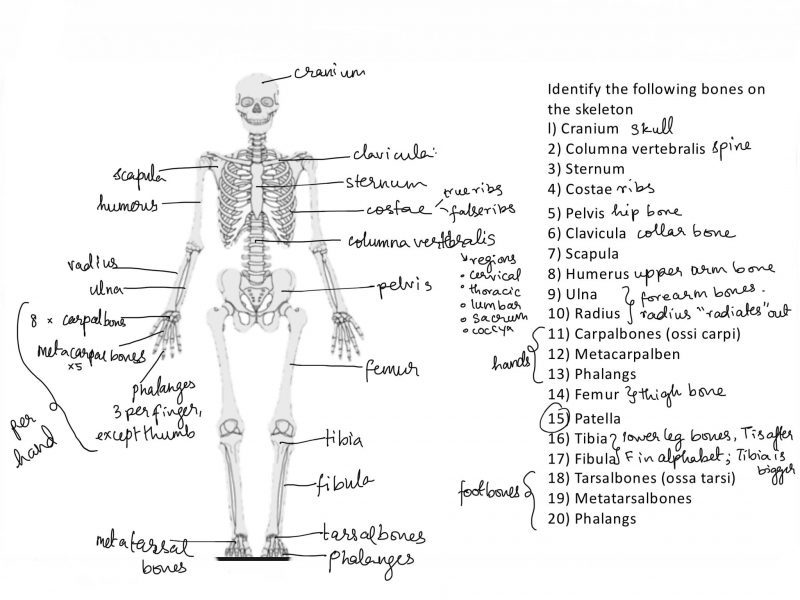 cranium
clavicula:
scapula
sternum
true ribs
humorus
costae
false ribs
columna vertebralis
regions
• cervical
• thoracic
• lumbar
• sacrum
• coccyx
radius
ulna
pelvis
8 × carpalbons
metacarpal bones
×5
phalanges
3 per finger,
except thumb
per
hand
femur
tibia
fibula
metatarsal
bones
tarsalbones
phalanges
Identify the following bones on
the skeleton
1) Cranium skull
2) Columna vertebralis spine
3) Sternum
4) Costae ribs
5) Pelvis hip bone
6) Clavicula collar bone
7) Scapula
8) Humerus upper arm bone
9) Ulna } forearm bones.
10) Radius radius "radiates" out
11) Carpalbones (ossi carpi)
hands
12) Metacarpalben
13) Phalangs
14) Femur } thigh bone
15) Patella
16) Tibia } lower leg bones, T is after
17) Fibula F in alphabet; Tibia is
bigger
18) Tarsalbones (ossa tarsi)
foot bones
19) Metatarsalbones
20) Phalangs